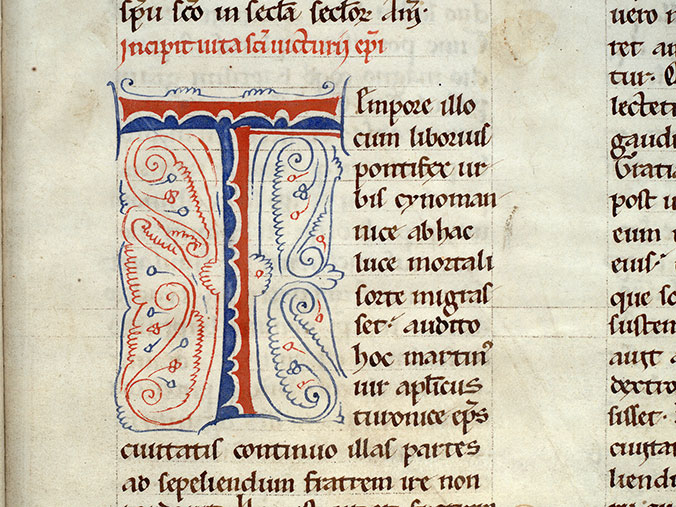 sp̄u sc̄o in secl̄a seclor̄ am̄.
Incipit uita sc̄i uicturij ep̄i
Tempore illo
cum liborius
pontifex ur
bis cynoman
nice ab hac
luce mortali
sorte migras
set. audito
hoc martinꝰ
uir apl̄icus
turonice ep̄s
ciuitatis continuo illas partes
ad sepeliendum fratrem ire non
uero
ret
tur.
lectet
gaudi
Gratia
post
eum
eius.
que
susten
dextro
sisset.
ciuitat
liendu